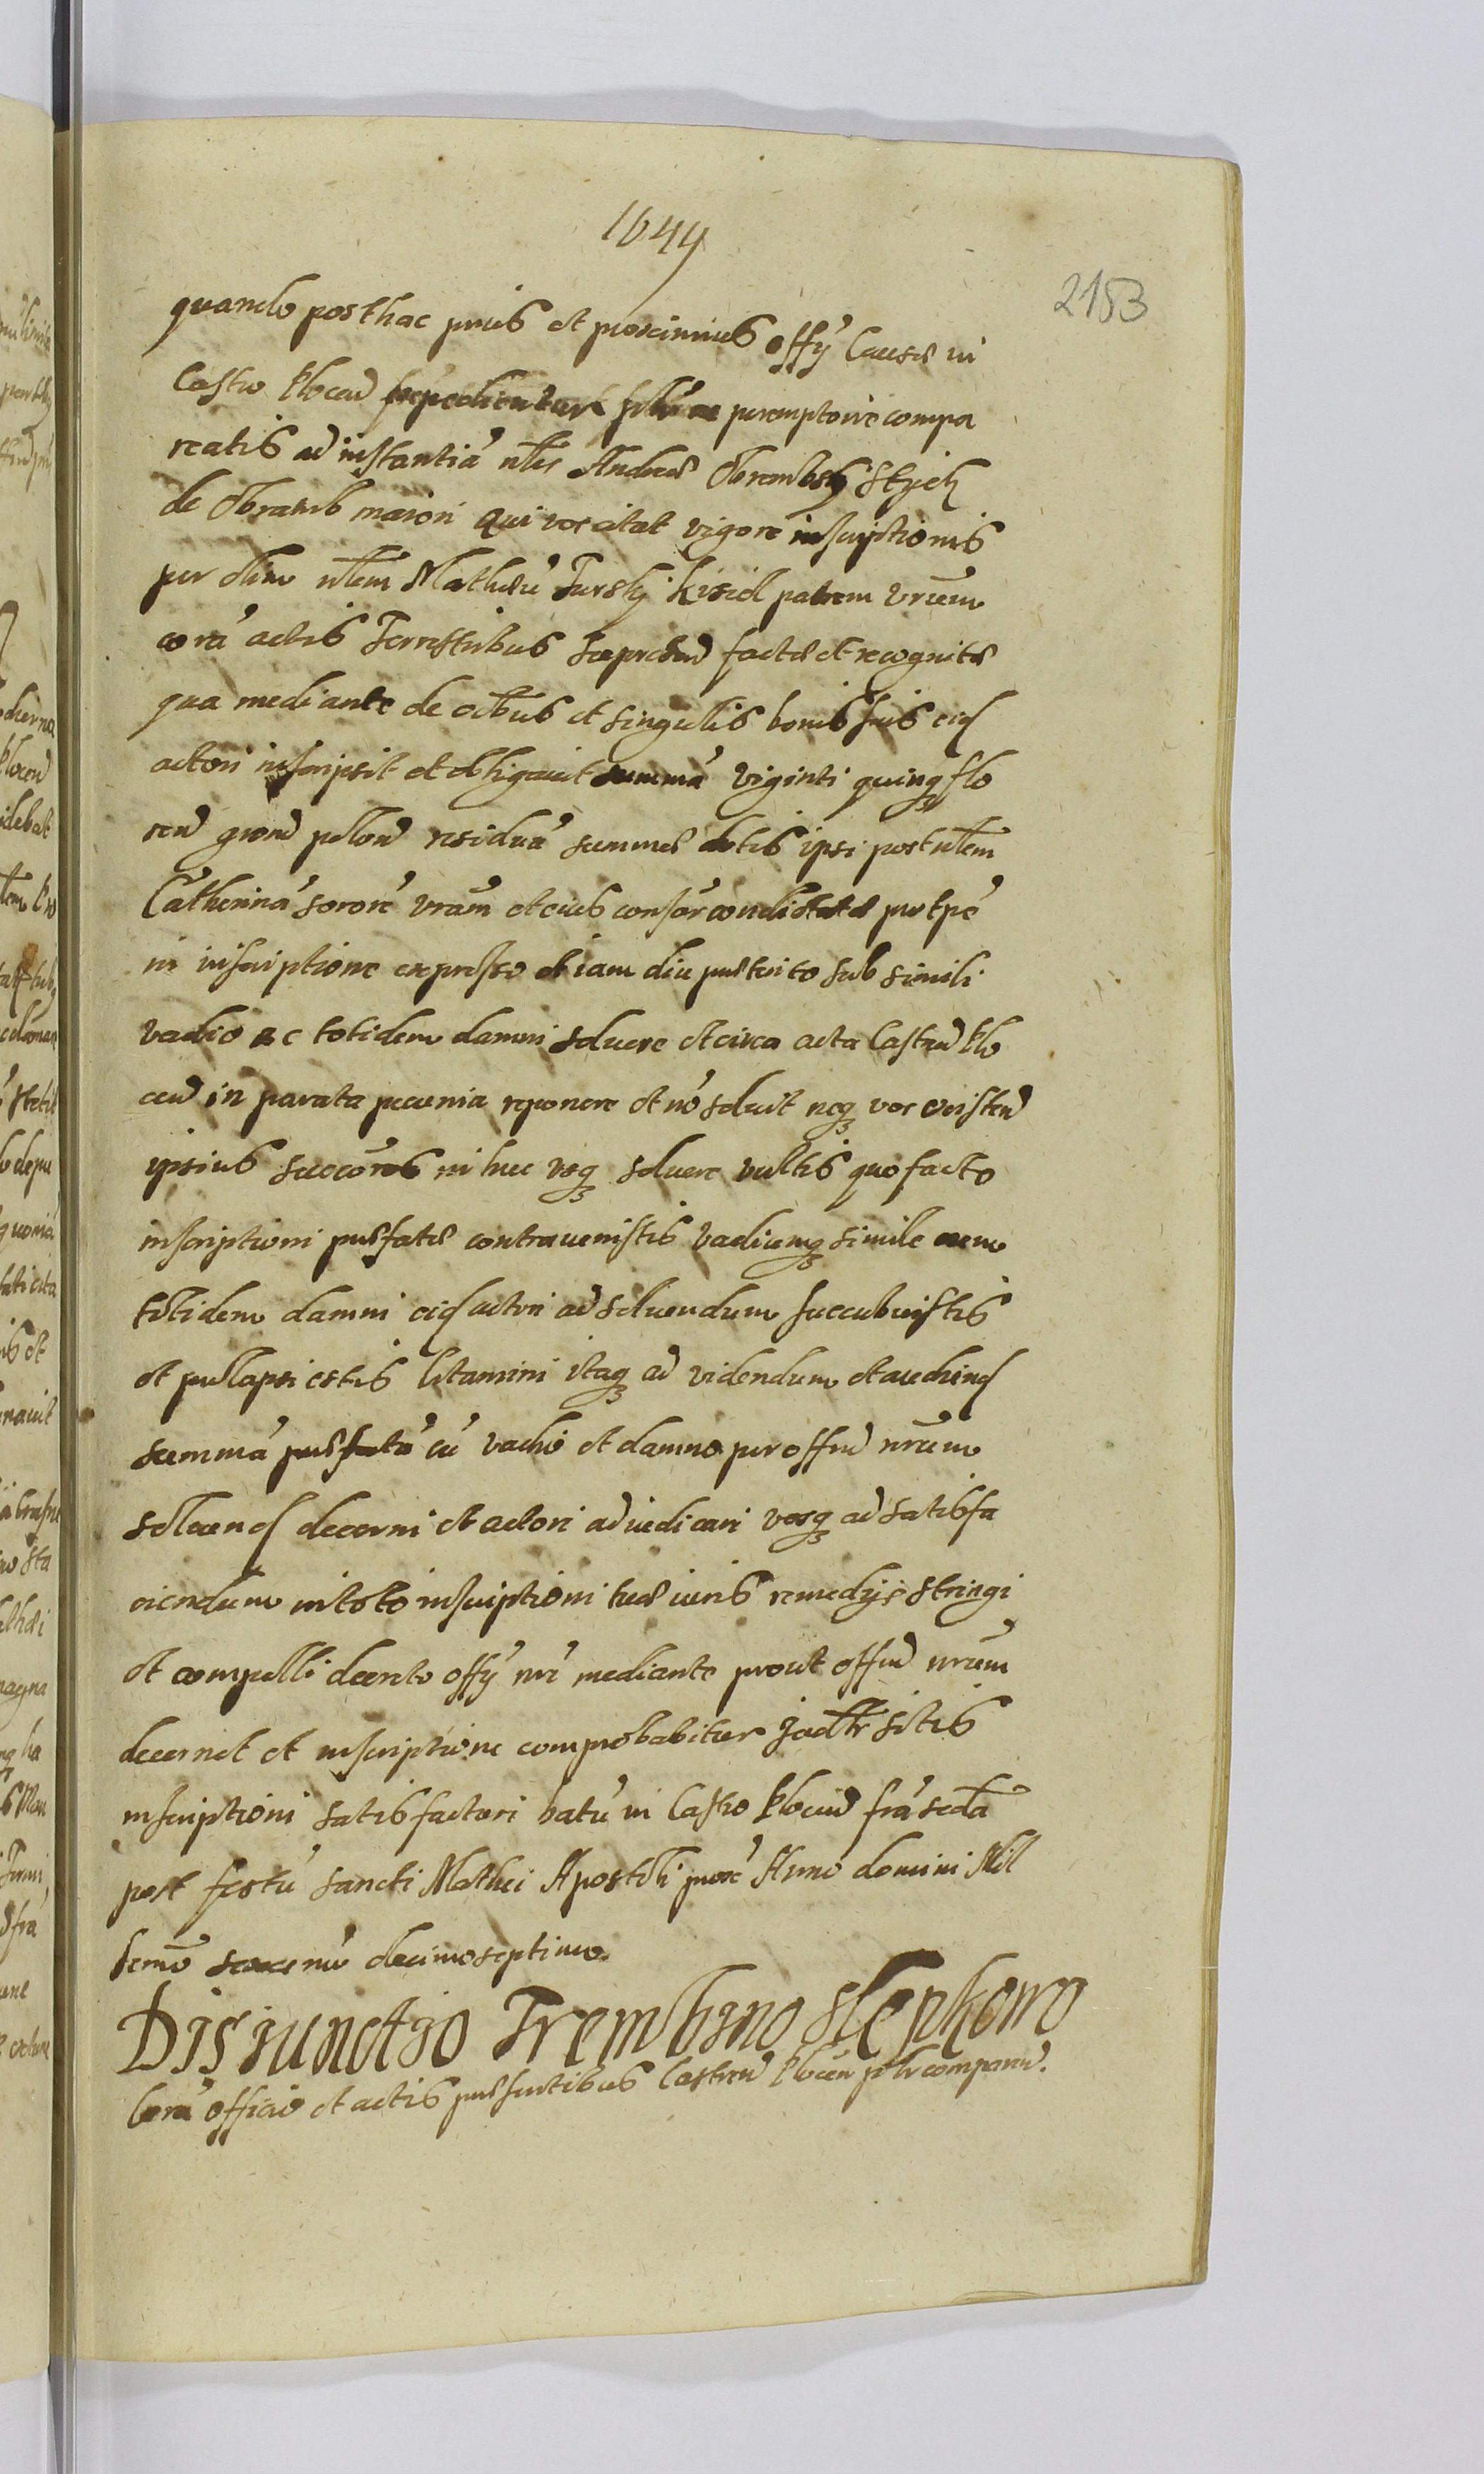 1649
2153
quando posthac prius et proximius offÿ Causæ in
Castro Plocen̄ expedientur peremptorie compa
reatis ad instantiā nb̄lis Andreæ Obrembskÿ Stych
de Obramb maiori qui vos citat vigore inscriptionis
per olim nb̄lem Mathæū Turskÿ Kisiel patrem vr̄um
corā actis Terrestribus Sieprcēn factæ et recognitæ
qua mediante de oībus et singulis bonis suis eid
actori inscripsit et obligauit summā viginti quinq̨ flo
ren̄ gron̄ polon̄ residuā summæ dotis ipsi post nb̄lem
Catherinā sororē vrām et eius consōr condictatæ pro tpē
in inscriptione expresso et iam diu præterito sub simili
vadio ac totidem damni soluere et circa acta Castren̄ Plo
cen̄ in parata pecunia reponere et nō soluit neq̨ vos existen̄
ipsius succōres in huc vsq̨ soluere vultis quo facto
inscriptioni præfatæ contrauenistis vadiumq̨ simile cum
totidem damni eid actori ad soluendum succubuistis
et prolapsi estis Citamini itaq̨ ad videndum et audiend
summā præfatā cū vadio et damno per offm̄ nr̄um
soluend decerni et actori adiudicari vosq̨ ad satisfa
ciendum in toto inscriptioni tuæ iuris remedÿs stringi
et compelli decreto offÿ nrī mediante prout offm̄ nr̄um
decernet et inscriptione comprobabitur sitis
inscriptioni satisfacturi Datū in Castro Plocen̄ fr̄a scd̄a
post festū sancti Mathei Apostoli prox̄ Anno domini Mil
lemō sexcenō decimoseptimo.
Disiunctio Trembino Slepkowo
Corā officio et actis præsentibus Castren̄ Plocēn plr̄ comparen̄.